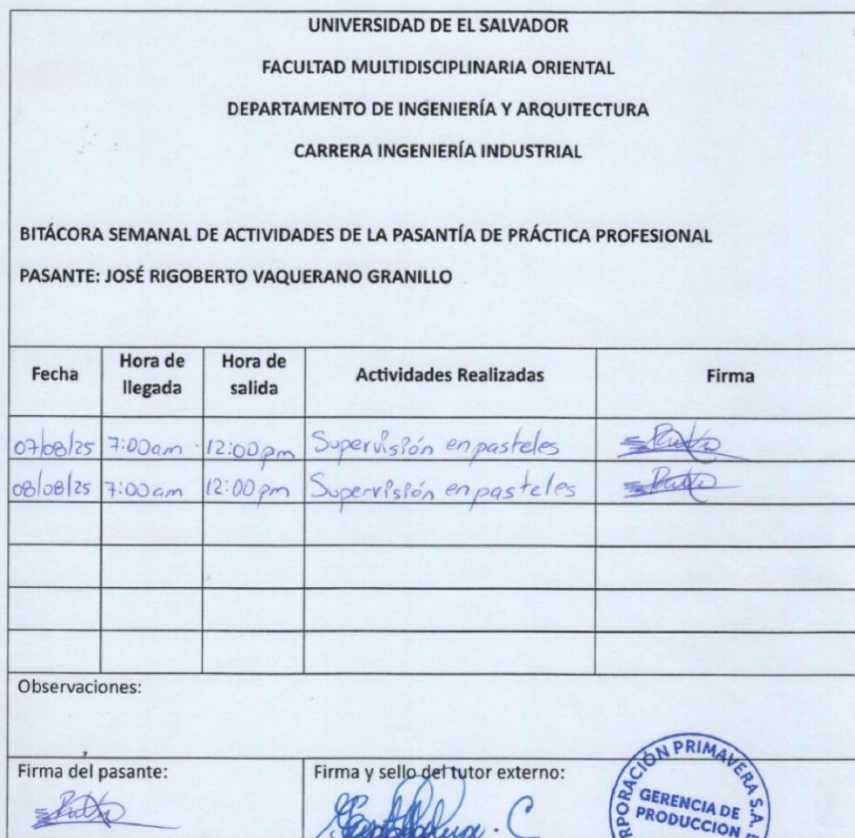 UNIVERSIDAD DE EL SALVADOR
FACULTAD MULTIDISCIPLINARIA ORIENTAL
DEPARTAMENTO DE INGENIERÍA Y ARQUITECTURA
CARRERA INGENIERÍA INDUSTRIAL
BITÁCORA SEMANAL DE ACTIVIDADES DE LA PASANTÍA DE PRÁCTICA PROFESIONAL
PASANTE: JOSÉ RIGOBERTO VAQUERANO GRANILLO
Fecha Hora de llegada Hora de salida Actividades Realizadas Firma
07/08/25 7:00am 12:00pm Supervisión en pasteles
08/08/25 7:00am 12:00pm Supervisión en pasteles
Observaciones:
Firma del pasante: Firma y sello del tutor externo:
PRIMAVERA S.A.
GERENCIA DE
PRODUCCION